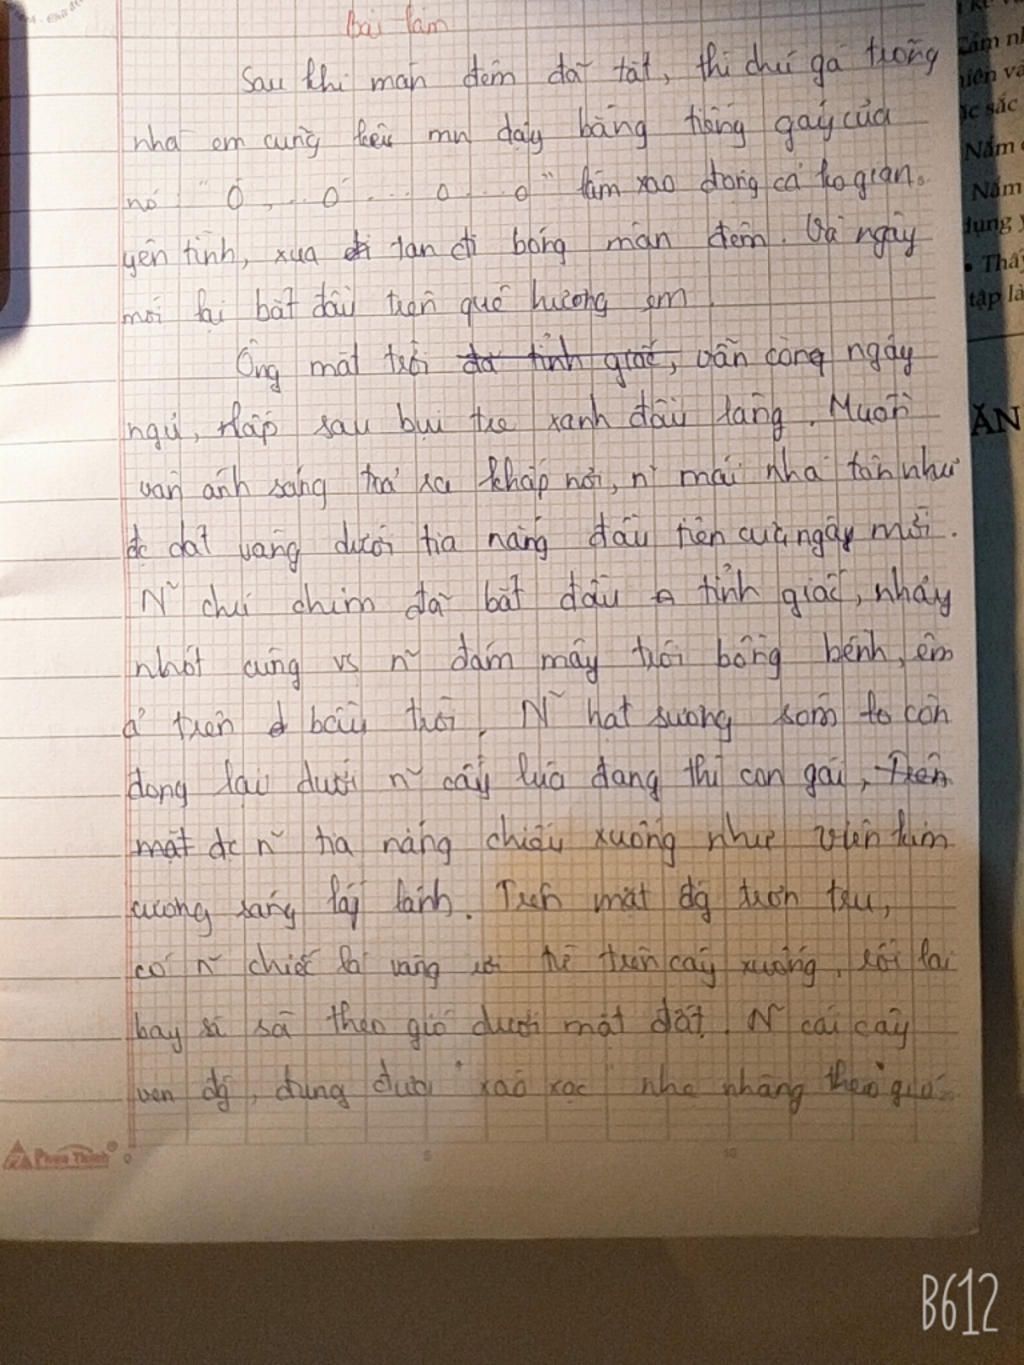 Bài làm
Sau khi màn đêm đã tắt, thì chú gà trống
nhà em cũng kêu mn dậy bằng tiếng gáy của
nó "Ò, .. ó ... o ... o" làm xao động cả ko gian
yên tĩnh, xua đi tan đi bóng màn đêm. Và ngày
mới lại bắt đầu trên quê hương em.
Ông mặt trời đã tỉnh giấc, vẫn còng ngáy
ngủ, nấp sau bụi tre xanh đầu làng. Muôn
vàn ánh sáng trả xa khắp nơi, n~ mái nhà tân như
đc dát vàng dưới tia nắng đầu tiên của ngày mới.
N~ chú chim đã bắt đầu tỉnh giấc, nhảy
nhót cùng vs n~ đám mây trôi bồng bềnh, êm
ả trên bầu trời. N~ hạt sương sớm to còn
đọng lại dưới n~ cây lúa đang thì con gái, Trên
mặt đc n~ tia nắng chiếu xuống như viên kim
cương sáng lấp lánh. Trên mặt đg trơn tru,
có n~ chiếc lá vàng rơi từ trên cây xuống, rồi lại
bay sà sà theo gió dưới mặt đất. N~ cái cây
ven đg, đung đưa "xào xạc" nhẹ nhàng theo gió.
Cảm n
iên v
c sắc
Nắm
Nắm
dụng
• Thấy
tập là
ĂN
Phan Thịnh
0 5 10
B612